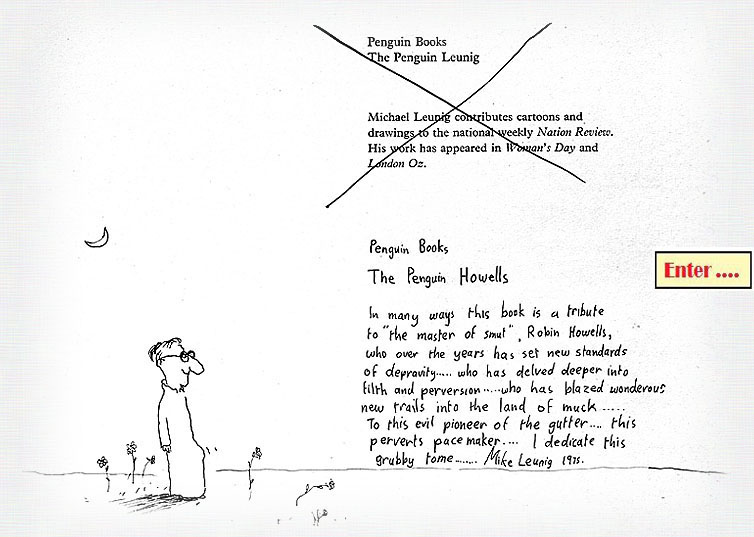 Penguin Books
The Penguin Leunig
Michael Leunig contributes cartoons and
drawings to the national weekly Nation Review.
His work has appeared in Woman's Day and
London Oz.
Penguin Books
The Penguin Howells
In many ways this book is a tribute
to "the master of smut", Robin Howells,
who over the years has set new standards
of depravity..... who has delved deeper into
filth and perversion.....who has blazed wonderous
new trails into the land of muck .....
To this evil pioneer of the gutter.... this
perverts pacemaker.... I dedicate this
grubby tome....... Mike Leunig 1975.
Enter ....